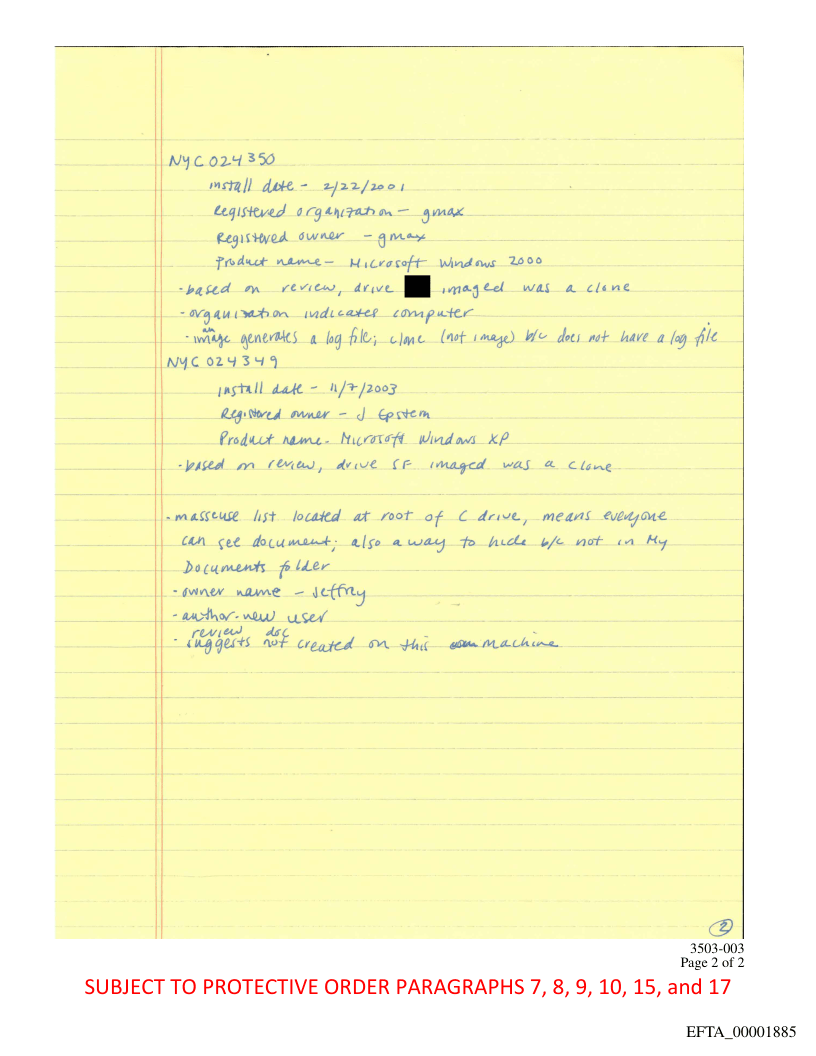 NYC 024350
Install date - 2/22/2001
Registered organization - gmax
Registered owner - gmax
Product name - Microsoft Windows 2000
- based on review, drive imaged was a clone
- organization indicates computer
- an image generates a log file; clone (not image) b/c does not have a log file
NYC 024349
Install date - 11/7/2003
Registered owner - J Epstein
Product name - Microsoft Windows XP
- based on review, drive SF imaged was a clone
- masseuse list located at root of C drive, means everyone
can see document; also a way to hide b/c not in My
Documents folder
- owner name - Jeffrey
- author - new user
- review suggests doc not created on this machine
2
3503-003
Page 2 of 2
SUBJECT TO PROTECTIVE ORDER PARAGRAPHS 7, 8, 9, 10, 15, and 17
EFTA_00001885